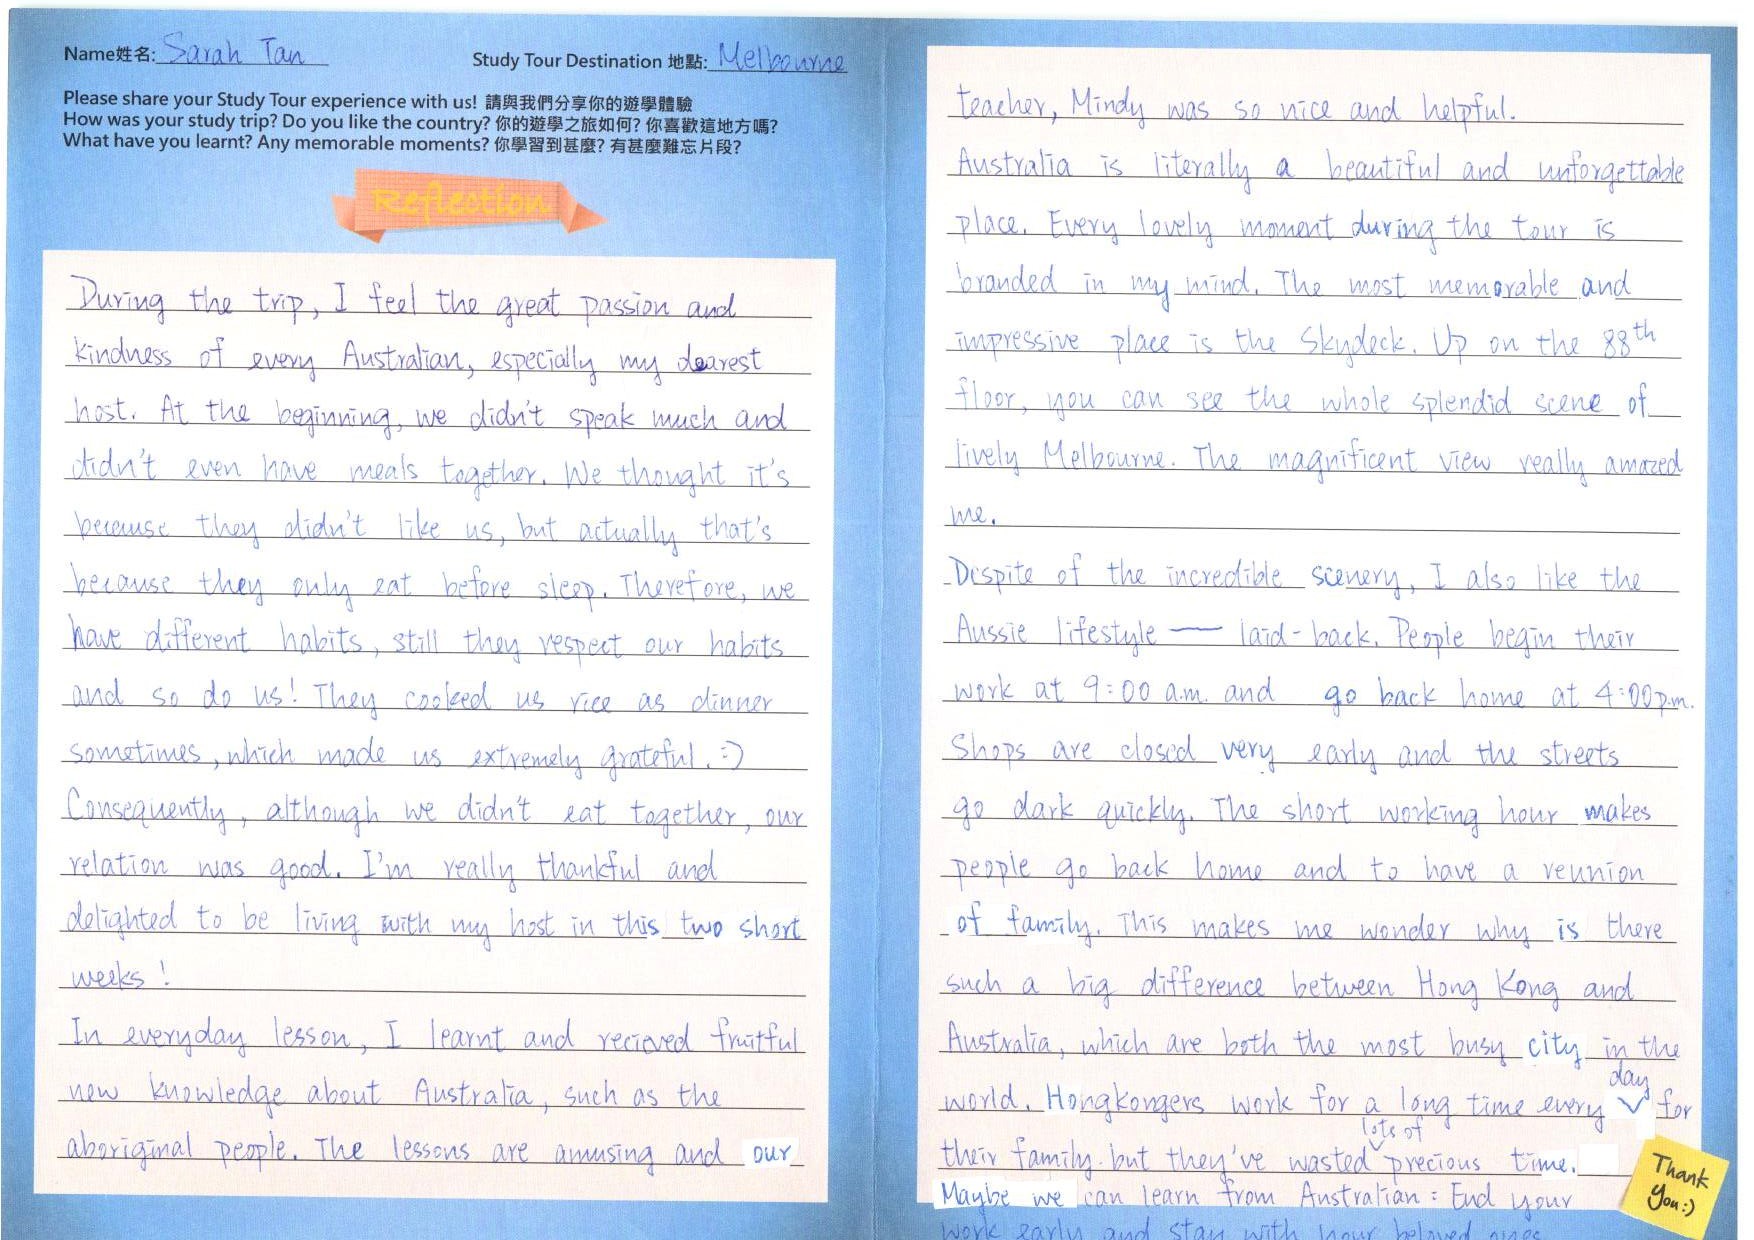 Name姓名: Sarah Tan
Study Tour Destination 地點: Melbourne
Please share your Study Tour experience with us! 請與我們分享你的遊學體驗
How was your study trip? Do you like the country? 你的遊學之旅如何? 你喜歡這地方嗎?
What have you learnt? Any memorable moments? 你學習到甚麼? 有甚麼難忘片段?
Reflection
During the trip, I feel the great passion and
kindness of every Australian, especially my dearest
host. At the beginning, we didn't speak much and
didn't even have meals together. We thought it's
because they didn't like us, but actually that's
because they only eat before sleep. Therefore, we
have different habits, still they respect our habits
and so do us! They cooked us rice as dinner
sometimes, which made us extremely grateful. :)
Consequently, although we didn't eat together, our
relation was good. I'm really thankful and
delighted to be living with my host in this two short
weeks!
In everyday lesson, I learnt and recieved fruitful
new knowledge about Australia, such as the
aboriginal people. The lessons are amusing and our
teacher, Mindy was so nice and helpful.
Australia is literally a beautiful and unforgettable
place. Every lovely moment during the tour is
branded in my mind. The most memorable and
impressive place is the Skydeck. Up on the 88th
floor, you can see the whole splendid scene of
lively Melbourne. The magnificent view really amazed
me.
Despite of the incredible scenery, I also like the
Aussie lifestyle — laid-back. People begin their
work at 9:00 a.m. and go back home at 4:00p.m.
Shops are closed very early and the streets
go dark quickly. The short working hour makes
people go back home and to have a reunion
of family. This makes me wonder why is there
such a big difference between Hong Kong and
Australia, which are both the most busy city in the
world. Hongkongers work for a long time every day for
their family. but they've wasted lots of precious time.
Maybe we can learn from Australian: End your
work early and stay with your beloved ones
Thank
You:)